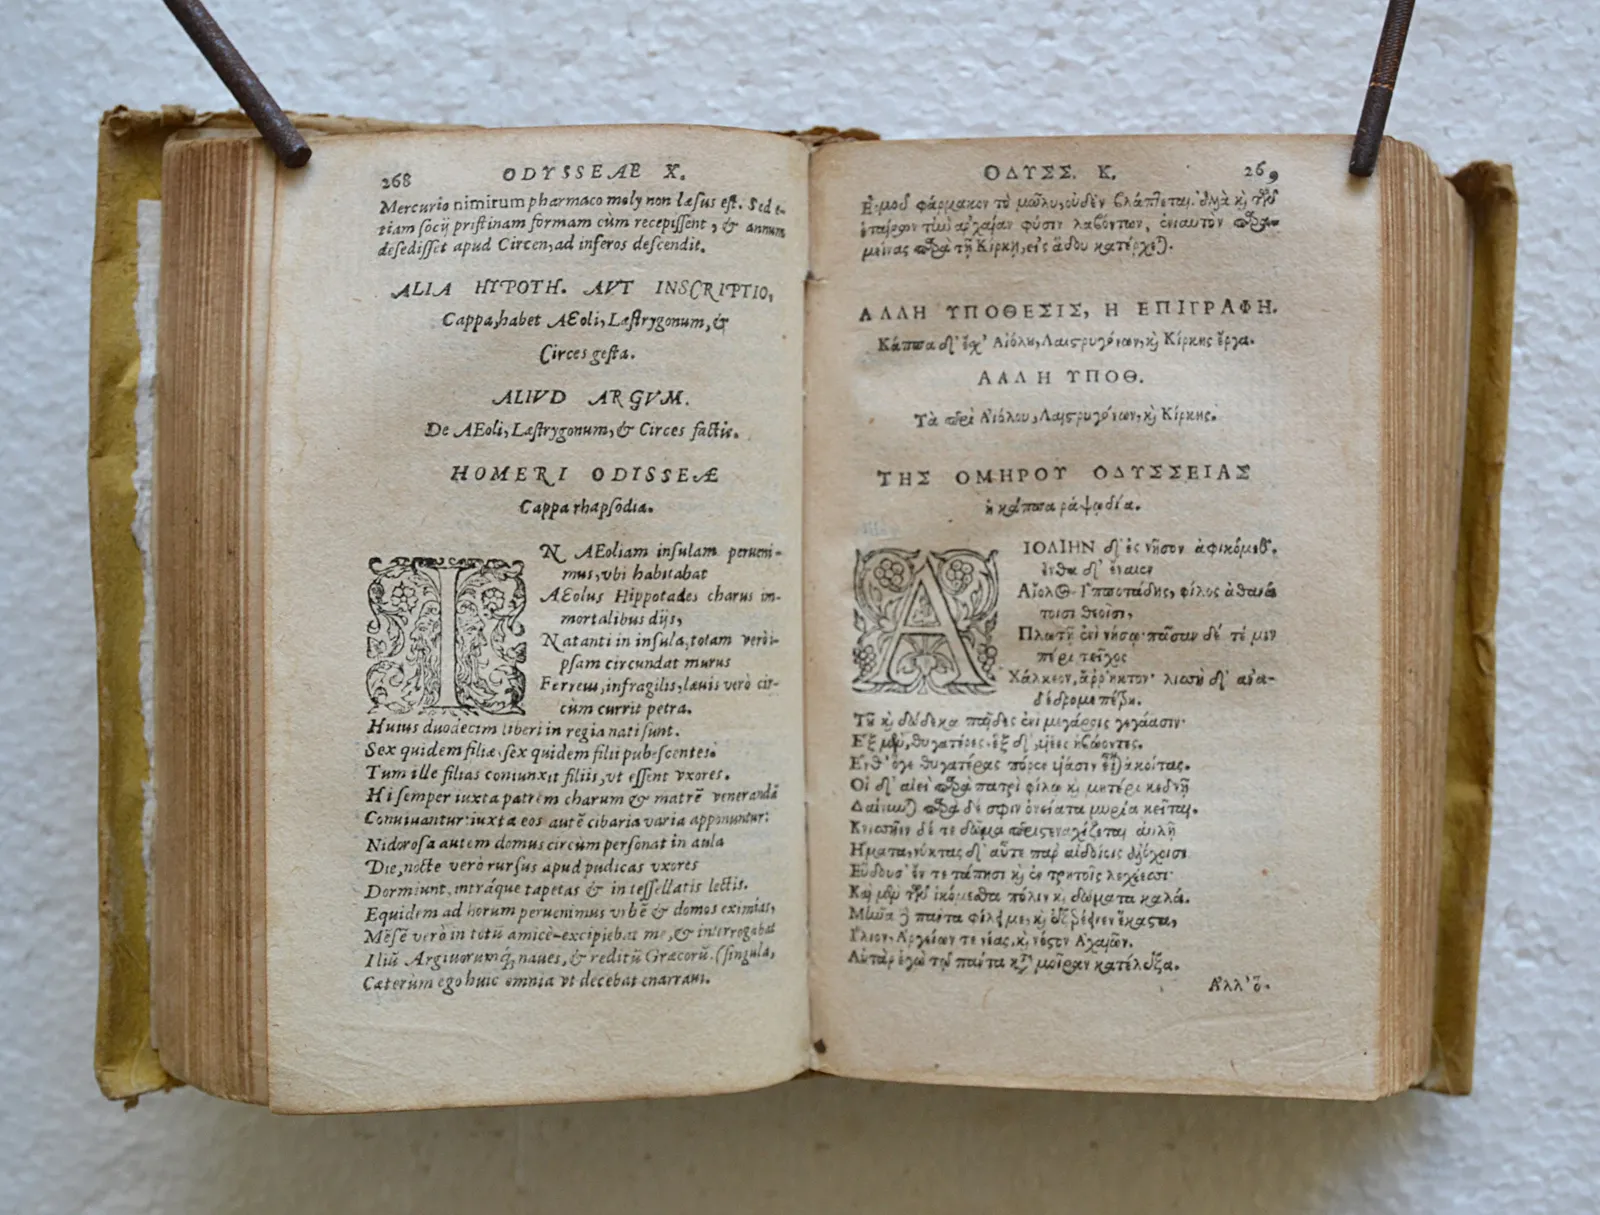 268 ODYSSEAE X.
Mercurio nimirum pharmaco moly non læsus est. Sed e-
tiam socij pristinam formam cùm recepissent, & annum
desedisset apud Circen, ad inferos descendit.
ALIA HYPOTH. AVT INSCRIPTIO,
Cappa, habet AEoli, Læstrygonum, &
Circes gesta.
ALIVD ARGVM.
De AEoli, Læstrygonum, & Circes factis.
HOMERI ODISSEÆ
Cappa rhapsodia.
IN AEoliam insulam perueni-
mus, vbi habitabat
AEolus Hippotades charus im-
mortalibus dijs,
Natanti in insula, totam verò i-
psam circundat murus
Ferreus, infragilis, læuis verò cir-
cùm currit petra.
Huius duodecim liberi in regia nati sunt.
Sex quidem filiæ, sex quidem filii pubescentes:
Tum ille filias coniunxit filiis, vt essent vxores.
Hi semper iuxta patrem charum & matrẽ venerandã
Conuiuantur: iuxta eos autẽ cibaria varia apponuntur:
Nidorosa autem domus circùm personat in aula
Die, nocte verò rursus apud pudicas vxores
Dormiunt, intráque tapetas & in tessellatis lectis.
Equidem ad horum peruenimus vrbẽ & domos eximias,
Mẽsẽ verò in totũ amicè excipiebat me, & interrogabat
Iliũ Argiuorumq́, naues, & reditũ Græcorũ. (singula,
Cæterùm ego huic omnia vt decebat enarraui.
ΟΔΥΣΣ. Κ. 269
Ε῾ρμοῦ φάρμακον τὸ μῶλυ, οὐδὲν βλάπτεται. ἀλλὰ κὶ τῶν
ἑταίρων τὴν ἀρχαίαν φύσιν λαβόντων, ἐνιαυτὸν παρα-
μείνας παρὰ τῇ Κίρκῃ, εἰς ᾅδου κατέρχεται.
ΑΛΛΗ ΥΠΟΘΕΣΙΣ, Η ΕΠΙΓΡΑΦΗ.
Κάππα δ' ἔχ' Αἰόλου, Λαιστρυγόνων, κὶ Κίρκης ἔργα.
ΑΛΛΗ ΥΠΟΘ.
Τὰ περὶ Αἰόλου, Λαιστρυγόνων, κὶ Κίρκης.
ΤΗΣ ΟΜΗΡΟΥ ΟΔΥΣΣΕΙΑΣ
ἡ κάππα ῥαψῳδία.
ΑΙΟΛΙΗΝ δ' ἐς νῆσον ἀφικόμεθ'.
ἔνθα δ' ἔναιεν
Αἴολος Ἱπποτάδης, φίλος ἀθανά
τοισι θεοῖσι,
Πλωτῇ ἐνὶ νήσῳ· πᾶσαν δέ τέ μιν
πέρι τεῖχος
Χάλκεον, ἄῤῥηκτον· λισσὴ δ' ἀνα-
δέδρομε πέτρη.
Τοῦ κὶ δώδεκα παῖδες ἐνὶ μεγάροις γεγάασιν·
Ε῞ξ μὲν θυγατέρες, ἓξ δ' υἱέες ἡβώοντες.
Ε῎νθ' ὅγε θυγατέρας πόρεν υἱάσιν εἶναι ἀκοίτας.
Οἱ δ' αἰεὶ παρὰ πατρὶ φίλῳ κὶ μητέρι κεδνῇ
Δαίνυνται παρὰ δέ σφιν ὀνείατα μυρία κεῖται.
Κνισσῆεν δέ τε δῶμα περιστεναχίζεται αὐλῇ
Η῎ματα, νύκτας δ' αὖτε παρ' αἰδοίῃς ἀλόχοισι
Εὕδουσ' ἔν τε τάπησι κὶ ἐν τρητοῖς λεχέεσσι·
Καὶ μὲν τῶν ἱκόμεσθα πόλιν κὶ δώματα καλά.
Μῆνα δὲ πάντα φίλει με, κὶ ἐξερέεινεν ἕκαστα,
Ι῎λιον, Ἀργείων τε νέας, κὶ νόστον Ἀχαιῶν.
Αὐτὰρ ἐγὼ τῷ πάντα κατὰ μοῖραν κατέλεξα.
Ἀλλ' ὅ-